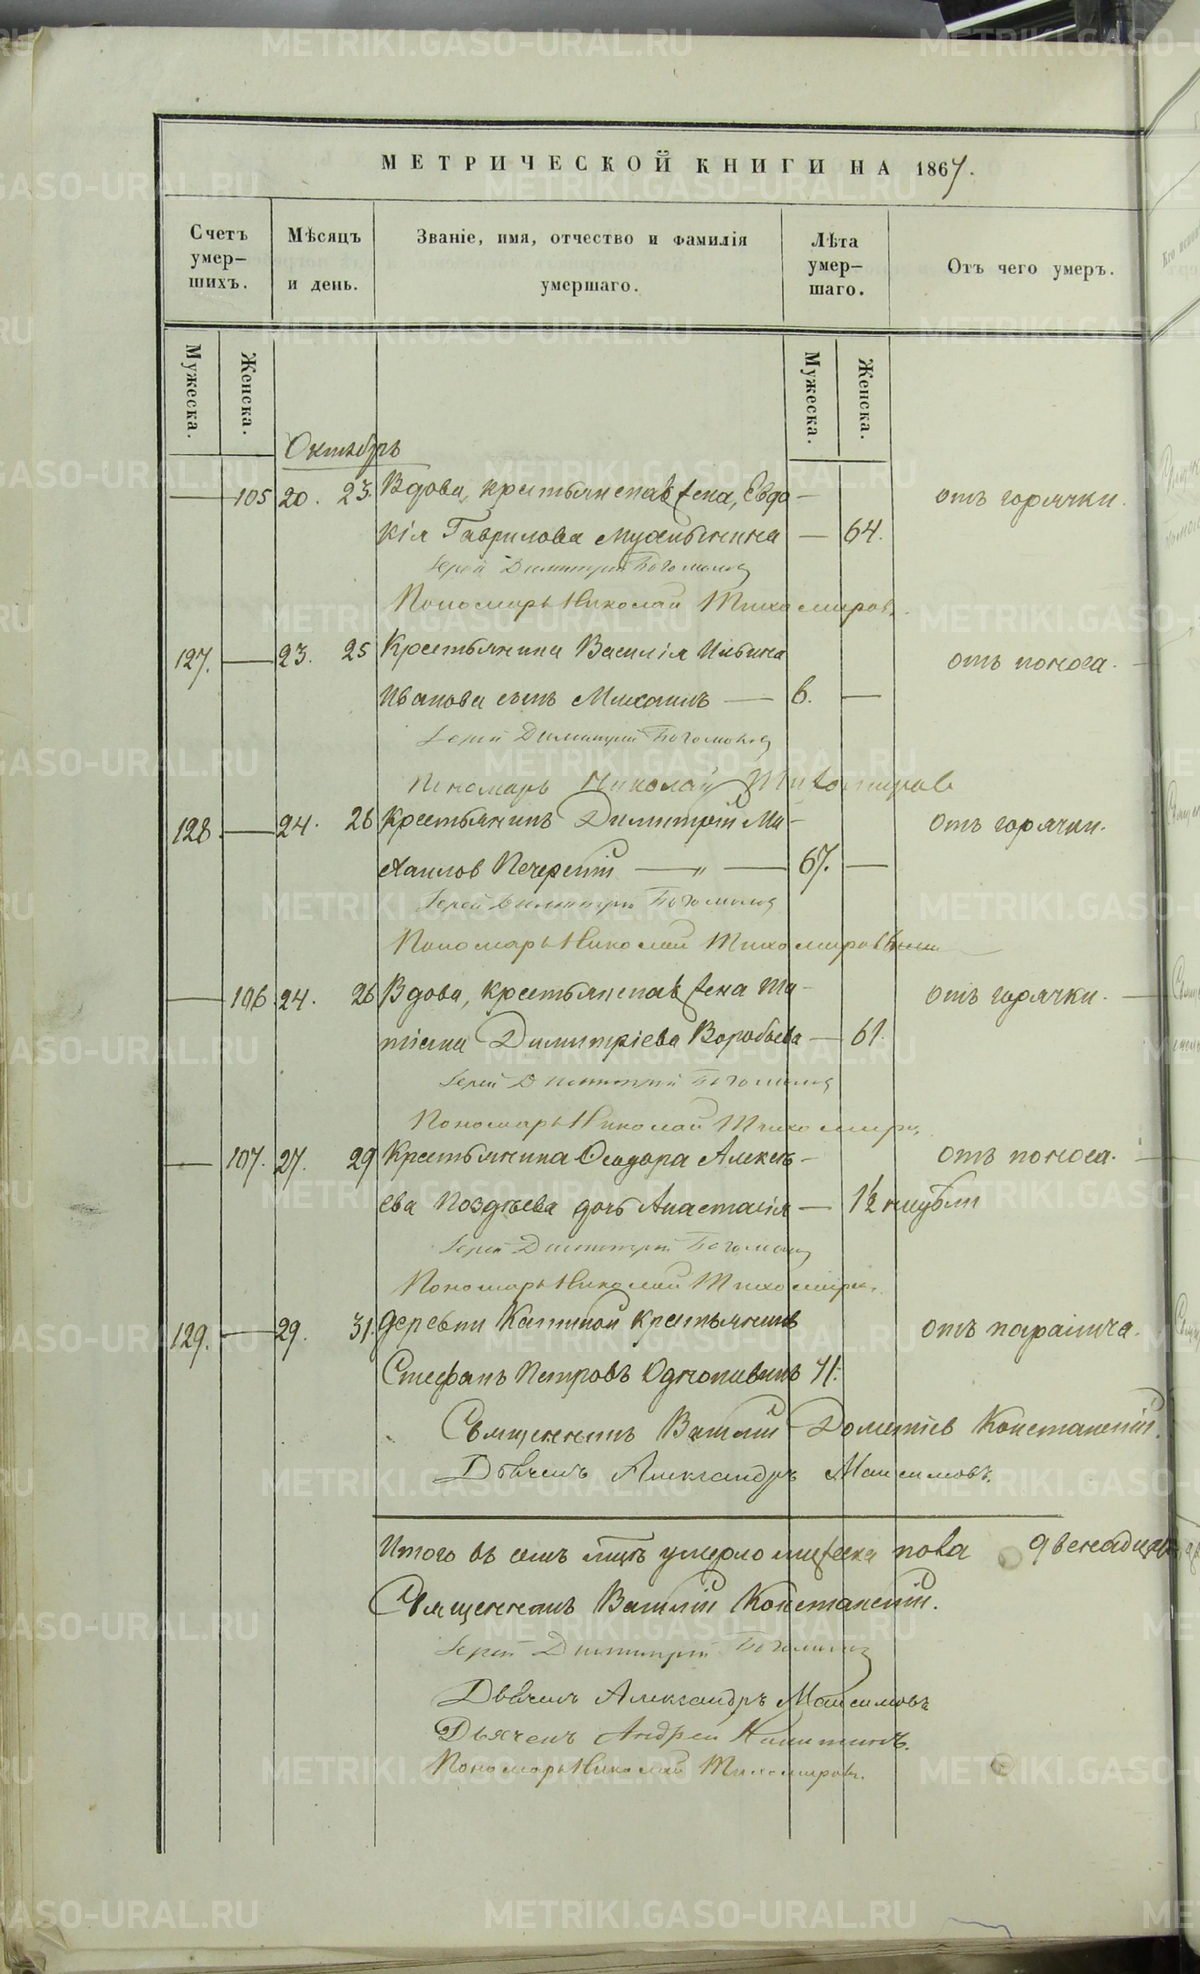 МЕТРИЧЕСКОЙ КНИГИ НА 1867.
Счетъ умер-шихъ.
Мѣсяцъ и день.
Званіе, имя, отчество и фамилія умершаго.
Лѣта умер-шаго.
Отъ чего умеръ.
Мужеска. Женска. Мужеска. Женска.
Октябрь
— 105 20. 23. Вдова, крестьянская жена, Евдо- отъ горячки.
кія Гаврилова — 64.
Іерей Димитрій Богомолов
Пономарь Николай Тихомиров.
127. — 23. 25 Крестьянина Василія Ильина отъ поноса.
Иванова сынъ Михаилъ — 6. —
Іерей Димитрій Богомолов
Пономарь Николай Тихомиров
128 — 24. 26 Крестьянинъ Димитрій Ми- отъ горячки.
хаилов Печерскій — " — 67. —
Іерей Димитрій Богомолов
Пономарь Николай Тихомиров
— 106 24. 26 Вдова, крестьянская жена Та- отъ горячки. —
тіана Димитріева Воробьева — 61.
Іерей Димитрій Богомолов
Пономарь Николай Тихомиров
— 107. 27. 29 Крестьянина Ѳеодора Алексѣ- отъ поноса.
ева Поздѣева дочь Анастасія — 1½
Іерей Димитрій Богомолов
Пономарь Николай Тихомиров.
129. — 29. 31. Деревни крестьянинъ отъ паралича.
Стефанъ Петровъ 71.
Священникъ Василій Константскій.
Дьячекъ Александръ Максимовъ.
Итого въ семъ умерло мужеска пола двенадцать
Священникъ Василій
Іерей Димитрій Богомолов
Дьячекъ Александръ Максимовъ
Дьячекъ Андрей Никитинъ.
Пономарь Николай Тихомировъ.
METRIKI.GASO-URAL.RU